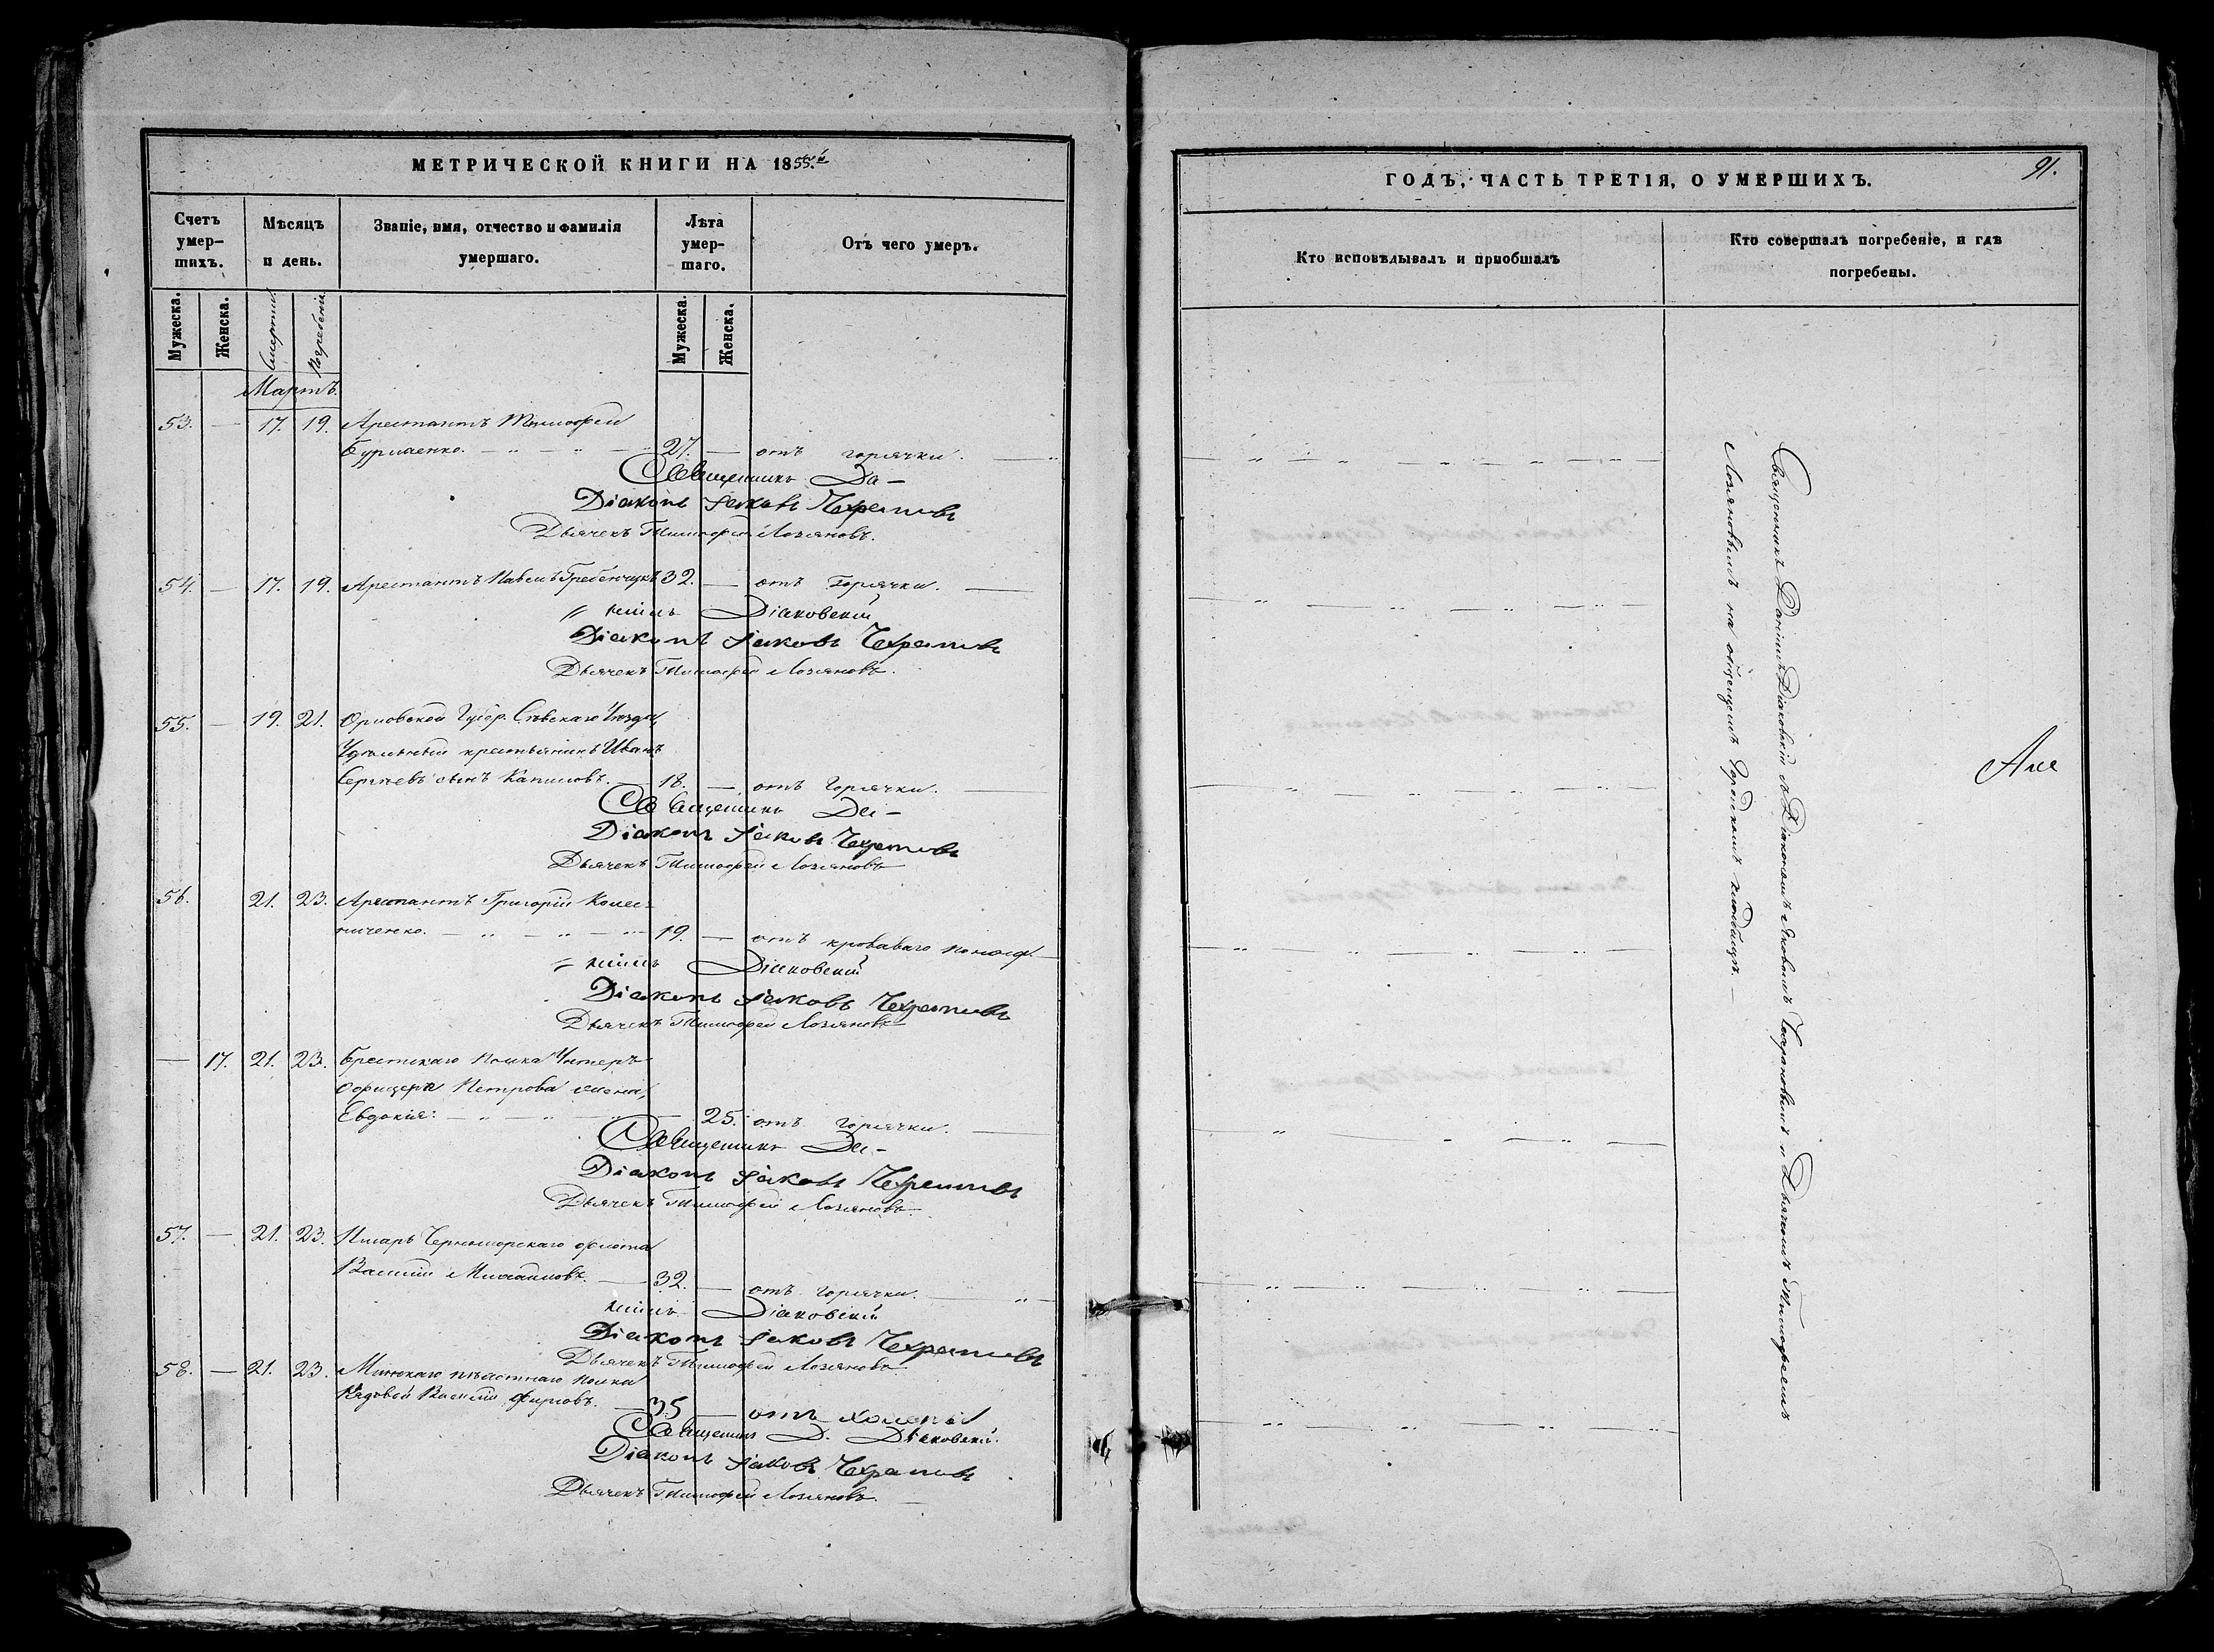 МЕТРИЧЕСКОЙ КНИГИ НА 1855й
Счетъ умер-шихъ.
Мѣсяцъ и день.
Званіе, имя, отчество и фамилія умершаго.
Лѣта умер-шаго.
Отъ чего умеръ.
Мужеска. Женска. Смерти. Погребенія. Мужеска. Женска.
Мартъ.
53. — 17. 19. Арестантъ Тимофей
Бурлаенко. 27. — отъ горячки.
Священникъ Да-
Діаконъ Іаковъ
Дьячекъ Тимофей Лозановъ.
54. — 17. 19. Арестантъ Павелъ Гребенчукъ 32. — отъ горячки.
Діаковскій
Діаконъ Іаковъ
Дьячекъ Тимофей Лозановъ.
55. — 19. 21. Орловской Губер. Сѣвскаго Уѣзда
Удѣльный крестьянинъ Иванъ
Сергѣевъ сынъ 18. — отъ горячки.
Священникъ Да-
Діаконъ Іаковъ
Дьячекъ Тимофей Лозановъ
56. 21. 23. Арестантъ Григорій Колес-
ниченко. 19. — отъ кроваваго поноса.
Діаковскій
Діаконъ Іаковъ
Дьячекъ Тимофей Лозановъ
— 17. 21. 23. Брестскаго полка Унтеръ
Офицера Петрова жена,
Евдокія: 25. отъ горячки.
Священникъ Да-
Діаконъ Іаковъ
Дьячекъ Тимофей Лозановъ.
57. — 21. 23. Писарь Черноморскаго флота
Василій Михайловъ. 32. — отъ горячки.
Діаковскій
Діаконъ Іаковъ
Дьячекъ Тимофей Лозановъ
58. — 21. 23. Минскаго пѣхотнаго полка
Рядовой Василій Фирсовъ. 35 — отъ холеры
Священникъ Д. Діаковскій.
Діаконъ Іаковъ
Дьячекъ Тимофей Лозановъ.
ГОДЪ, ЧАСТЬ ТРЕТІЯ, О УМЕРШИХЪ.
91.
Кто исповѣдывалъ и пріобщалъ
Кто совершалъ погребеніе, и гдѣ погребены.
Священникъ Даніилъ Діаковскій съ Діакономъ Яковомъ и Дьячкомъ Тимофеемъ
Лозановымъ на общемъ Городскомъ кладбищѣ.